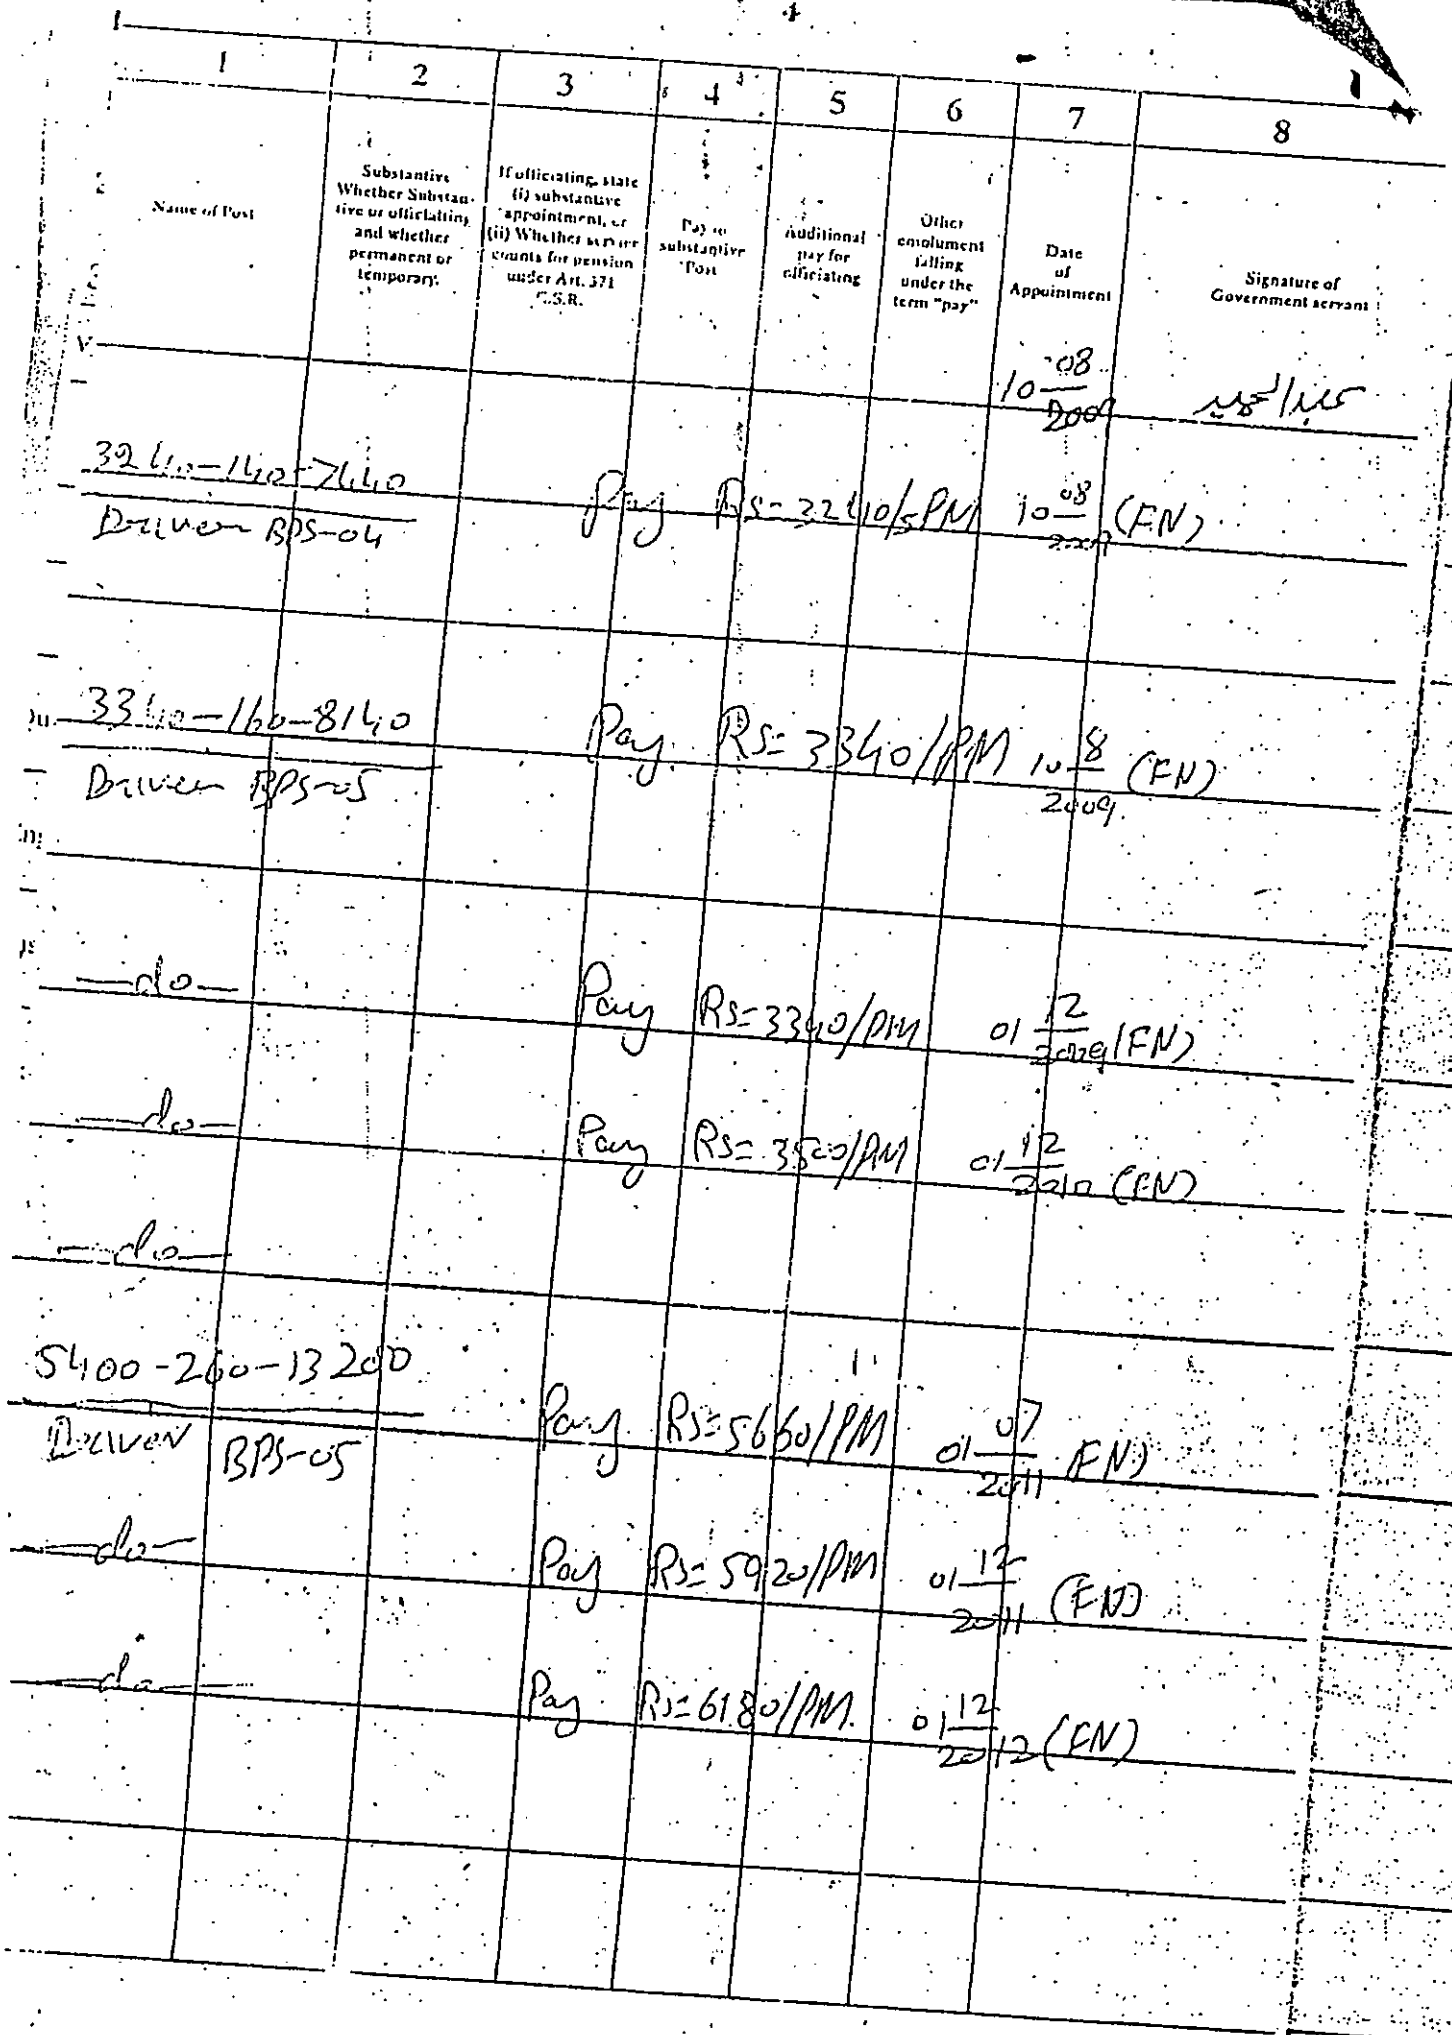 4
1 2 3 4 5 6 7 8
Name of Post
Substantive
Whether Substan-
tive or officiatting
and whether
permanent or
temporary.
If officiating, state
(i) substantive
appointment, or
(ii) Whether service
counts for pension
under Art. 371
C.S.R.
Pay in
substantive
Post
Auditional
pay for
officiating
Other
emolument
falling
under the
term "pay"
Date
of
Appointment
Signature of
Government servant
10 08/2009 عبدالحمید
3240-140-7440
Driver BPS-04
Pay Rs= /PM 10 08/2009 (FN)
3340-160-8140
Driver BPS-05
Pay Rs= 3340/PM 10 8/2009 (FN)
—do— Pay Rs=3340/PM 01 12/2009 (FN)
—do— Pay Rs= 3500/PM 01 12/2010 (FN)
—do—
5400-260-13200
Driver BPS-05
Pay Rs=5660/PM 01 07/2011 (FN)
—do— Pay Rs= 5920/PM 01 12/2011 (FN)
—do— Pay Rs=6180/PM. 01 12/2012 (FN)